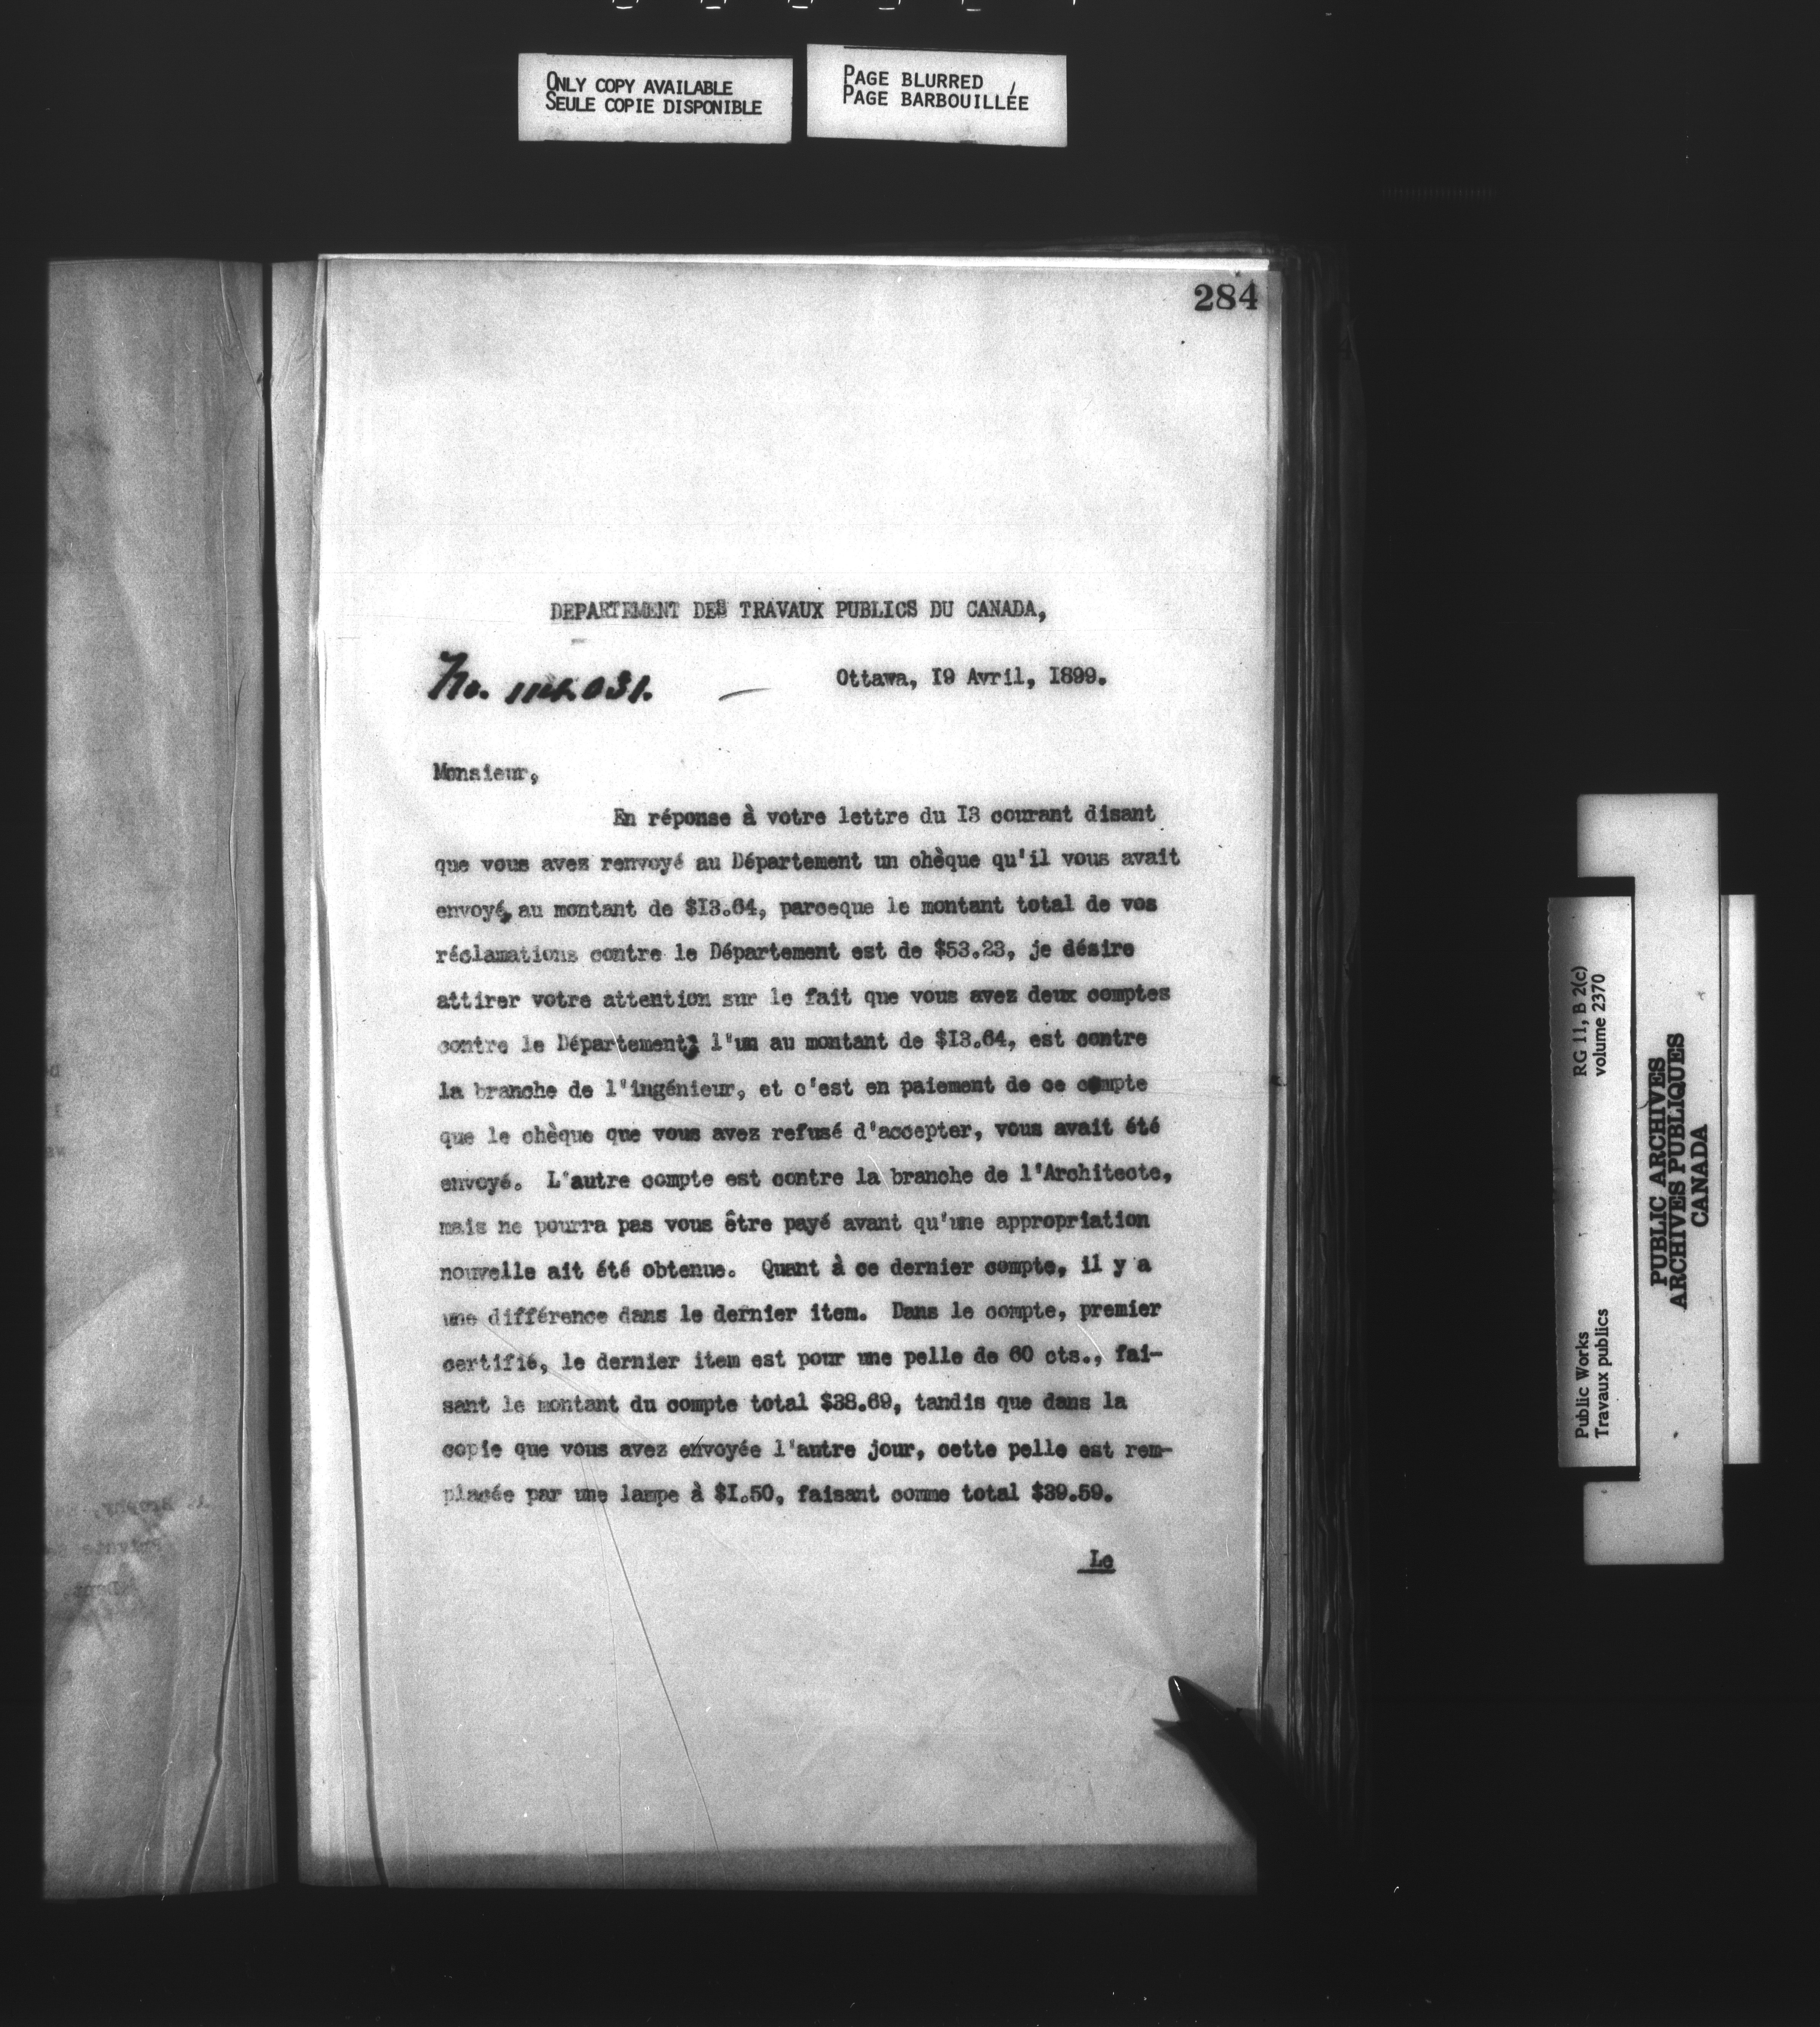 ONLY COPY AVAILABLE
SEULE COPIE DISPONIBLE
PAGE BLURRED
PAGE BARBOUILLÉE
284
DEPARTEMENT DES TRAVAUX PUBLICS DU CANADA,
No.
Ottawa, I9 Avril, I899.
Monsieur,
En réponse à votre lettre du I3 courant disant
que vous avez renvoyé au Département un chèque qu'il vous avait
envoyé, au montant de $I3.64, parceque le montant total de vos
réclamations contre le Département est de $53.23, je désire
attirer votre attention sur le fait que vous avez deux comptes
contre le Département; l"un au montant de $I3.64, est contre
la branche de l'ingénieur, et c'est en paiement de ce compte
que le chèque que vous avez refusé d'accepter, vous avait été
envoyé. L'autre compte est contre la branche de l'Architecte,
mais ne pourra pas vous être payé avant qu'une appropriation
nouvelle ait été obtenue. Quant à ce dernier compte, il y a
une différence dans le dernier item. Dans le compte, premier
certifié, le dernier item est pour une pelle de 60 cts., fai-
sant le montant du compte total $38.69, tandis que dans la
copie que vous avez envoyée l'autre jour, cette pelle est rem-
placée par une lampe à $I.50, faisant comme total $39.59.
Le
RG 11, B 2(c)
volume 2370
Public Works
Travaux publics
PUBLIC ARCHIVES
ARCHIVES PUBLIQUES
CANADA